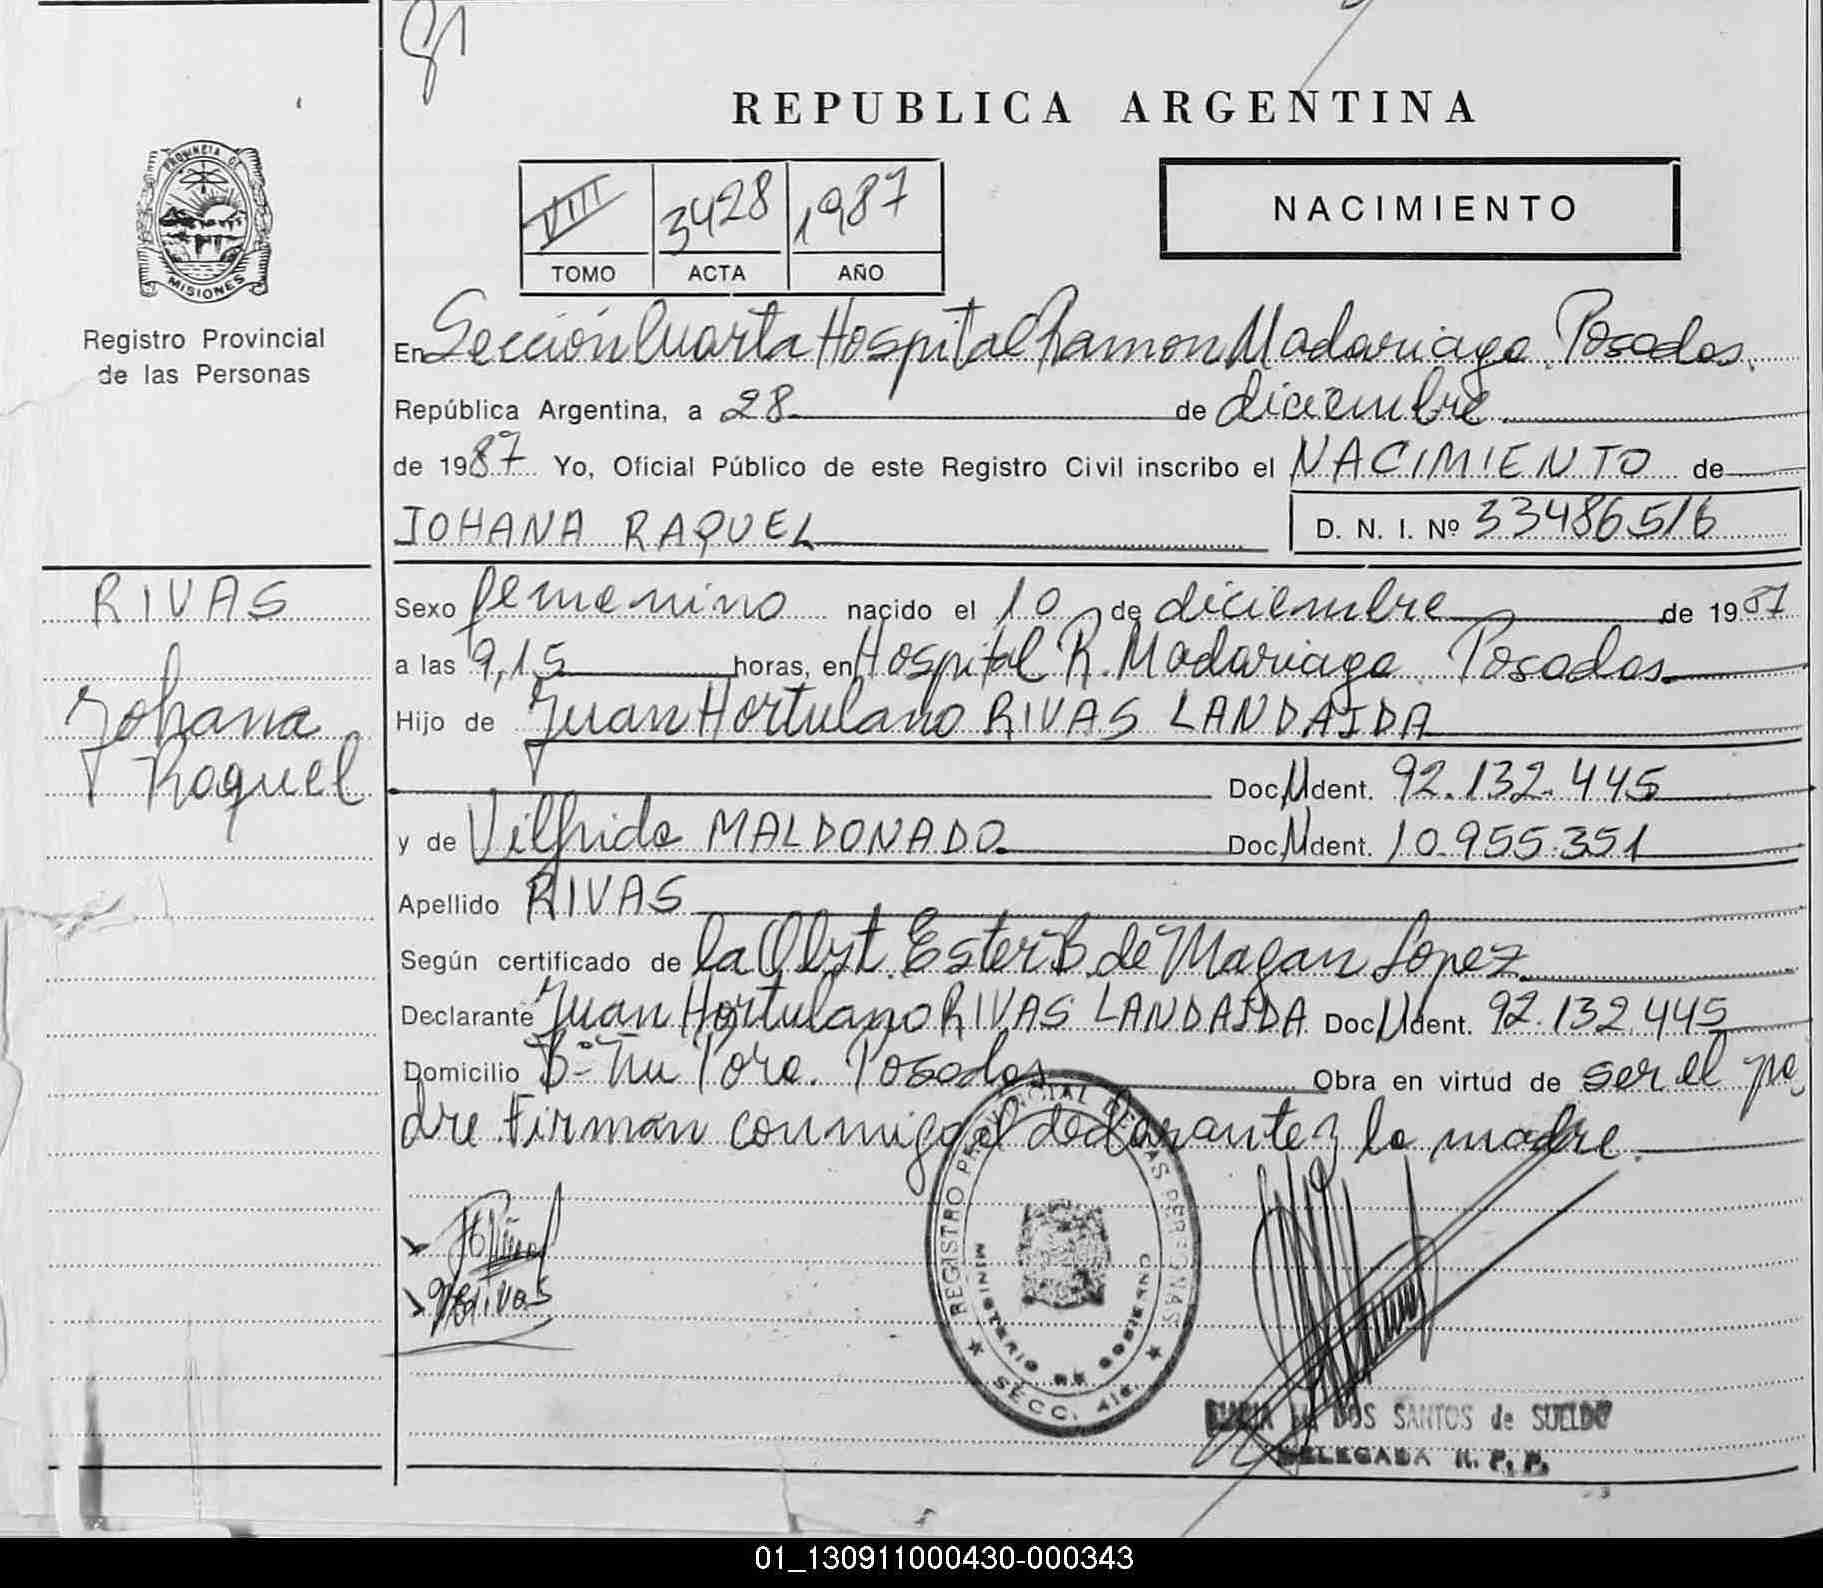 REPUBLICA ARGENTINA
PROVINCIA DE MISIONES
Registro Provincial
de las Personas
VIII 3428 1987
TOMO ACTA AÑO
NACIMIENTO
En Sección Cuarta Hospital Ramon Madariaga. Posadas.
República Argentina, a 28 de diciembre
de 1987 Yo, Oficial Público de este Registro Civil inscribo el NACIMIENTO de
JOHANA RAQUEL
D. N. I. Nº 33486516
RIVAS
Johana
Raquel
Sexo femenino nacido el 10 de diciembre de 1987
a las 9,15 horas, en Hospital R. Madariaga Posadas.
Hijo de Juan Hortulano RIVAS LANDAIDA
Doc. Ident. 92.132.445
y de Vilfrida MALDONADO Doc. Ident. 10.955.351
Apellido RIVAS
Según certificado de la Obst. Ester B. de Magan Lopez
Declarante Juan Hortulano RIVAS LANDAIDA Doc. Ident. 92.132.445
Domicilio Bº Ñu Pora. Posadas Obra en virtud de ser el pa
dre. Firman conmigo el declarante y la madre.
REGISTRO PROVINCIAL DE LAS PERSONAS
MINISTERIO DE GOBIERNO
SECC. 4ta
DOS SANTOS de SUELDO
DELEGADA R. P. P.
01_130911000430-000343